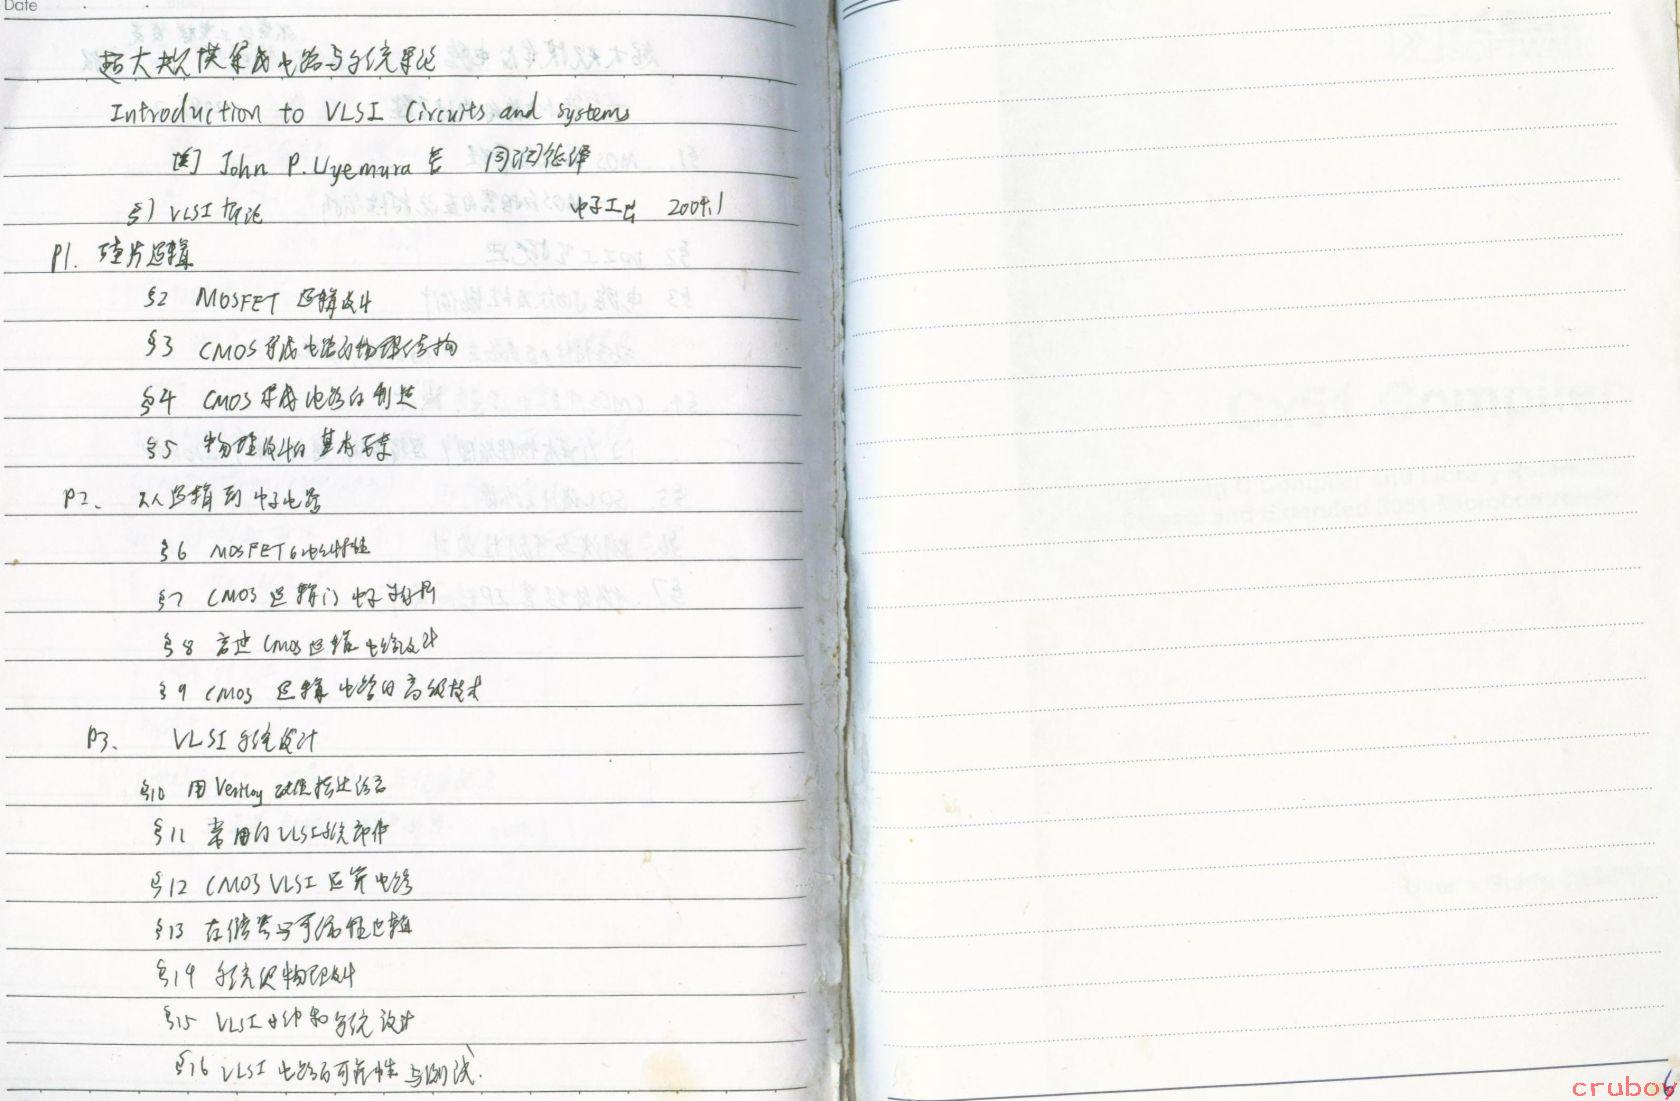 Date
超大规模集成电路与系统导论
Introduction to VLSI Circuits and systems
[美] John P. Uyemura 著 周润德译
§1 VLSI 概论 电子工业 2004.1
P1. 硅片逻辑
§2 MOSFET 逻辑设计
§3 CMOS 集成电路的物理结构
§4 CMOS 集成电路的制造
§5 物理设计的基本要素
P2、从逻辑到电子电路
§6 MOSFET的电气特性
§7 CMOS 逻辑门电子分析
§8 高速CMOS逻辑电路设计
§9 CMOS 逻辑电路的高级技术
P3、 VLSI 系统设计
§10 用Verilog 硬件描述语言
§11 常用的VLSI系统部件
§12 CMOS VLSI 运算电路
§13 存储器与可编程逻辑
§14 系统级物理设计
§15 VLSI 时钟和系统设计
§16 VLSI 电路的可靠性与测试.
Cx51 Compiler
cruboy